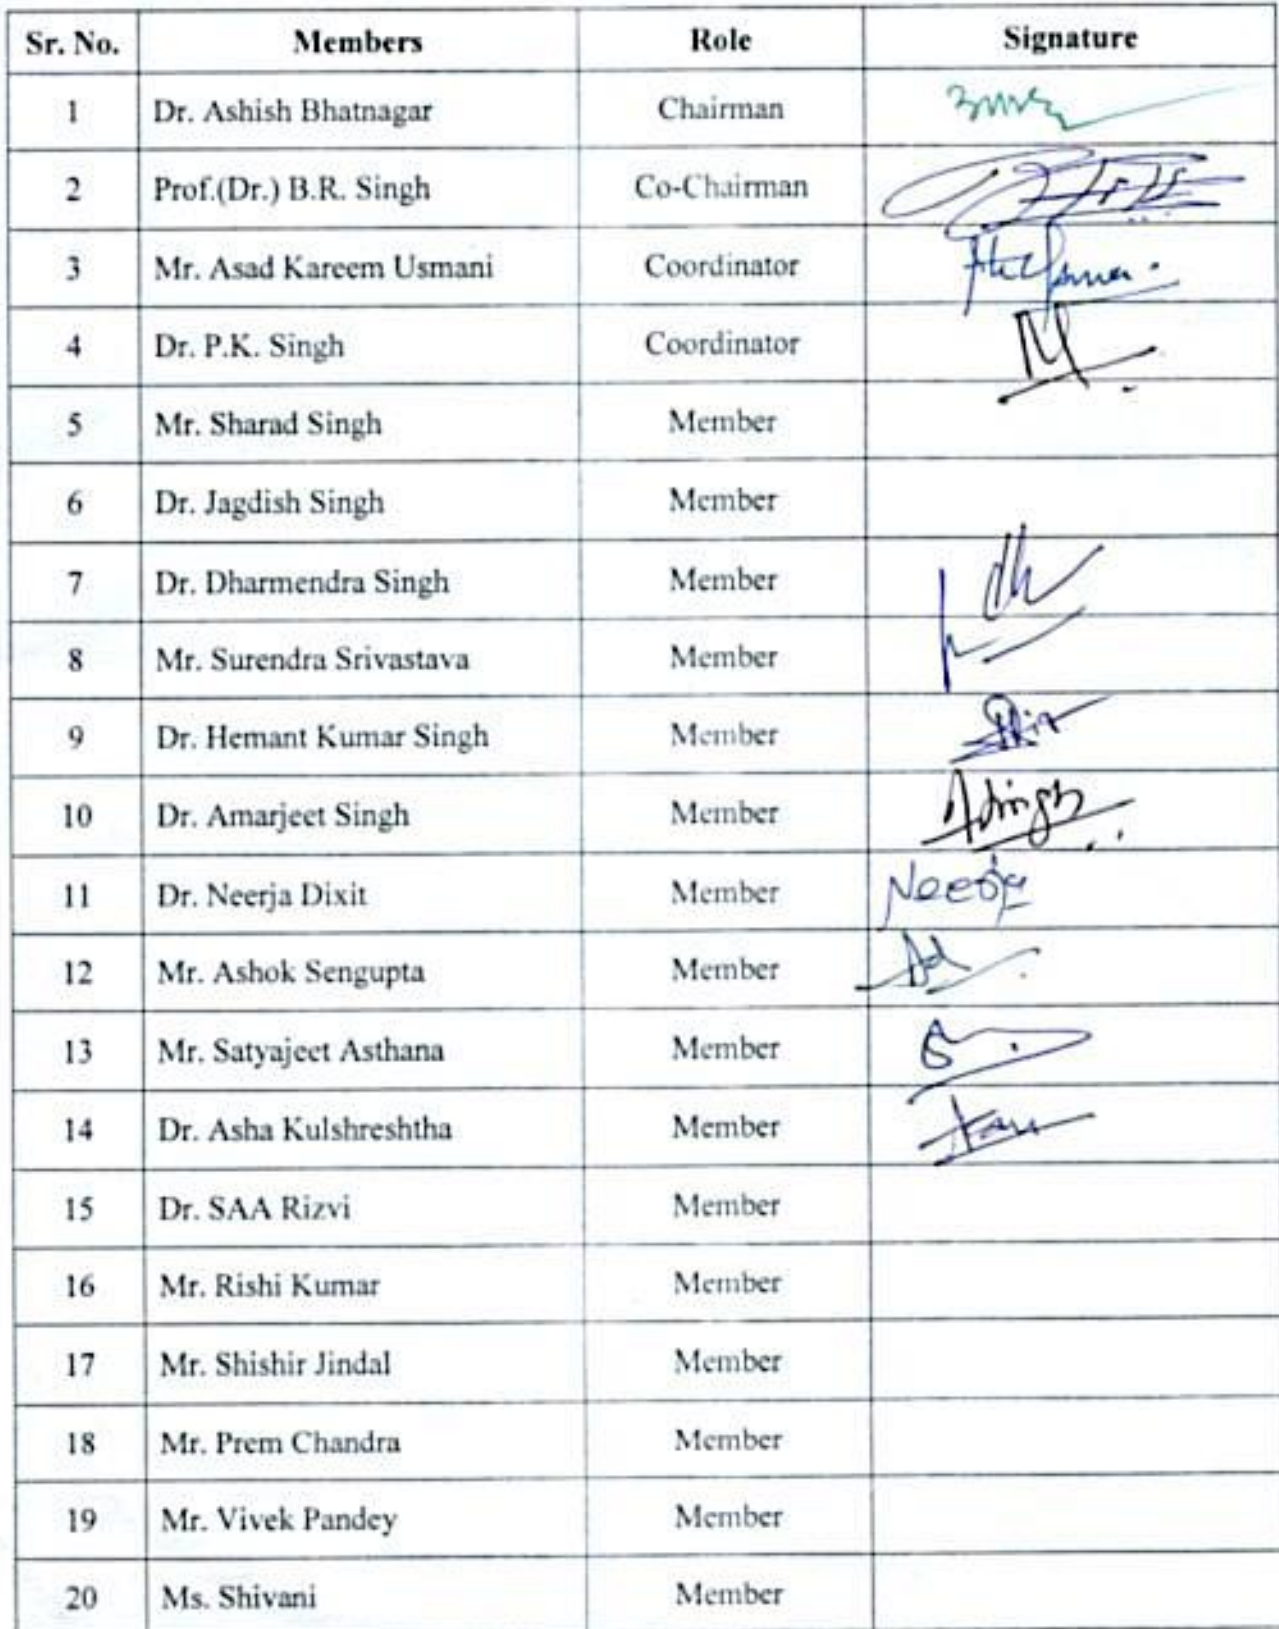 Sr. No. Members Role Signature
1 Dr. Ashish Bhatnagar Chairman
2 Prof.(Dr.) B.R. Singh Co-Chairman
3 Mr. Asad Kareem Usmani Coordinator
4 Dr. P.K. Singh Coordinator
5 Mr. Sharad Singh Member
6 Dr. Jagdish Singh Member
7 Dr. Dharmendra Singh Member
8 Mr. Surendra Srivastava Member
9 Dr. Hemant Kumar Singh Member
10 Dr. Amarjeet Singh Member
11 Dr. Neerja Dixit Member Neerja
12 Mr. Ashok Sengupta Member
13 Mr. Satyajeet Asthana Member
14 Dr. Asha Kulshreshtha Member
15 Dr. SAA Rizvi Member
16 Mr. Rishi Kumar Member
17 Mr. Shishir Jindal Member
18 Mr. Prem Chandra Member
19 Mr. Vivek Pandey Member
20 Ms. Shivani Member